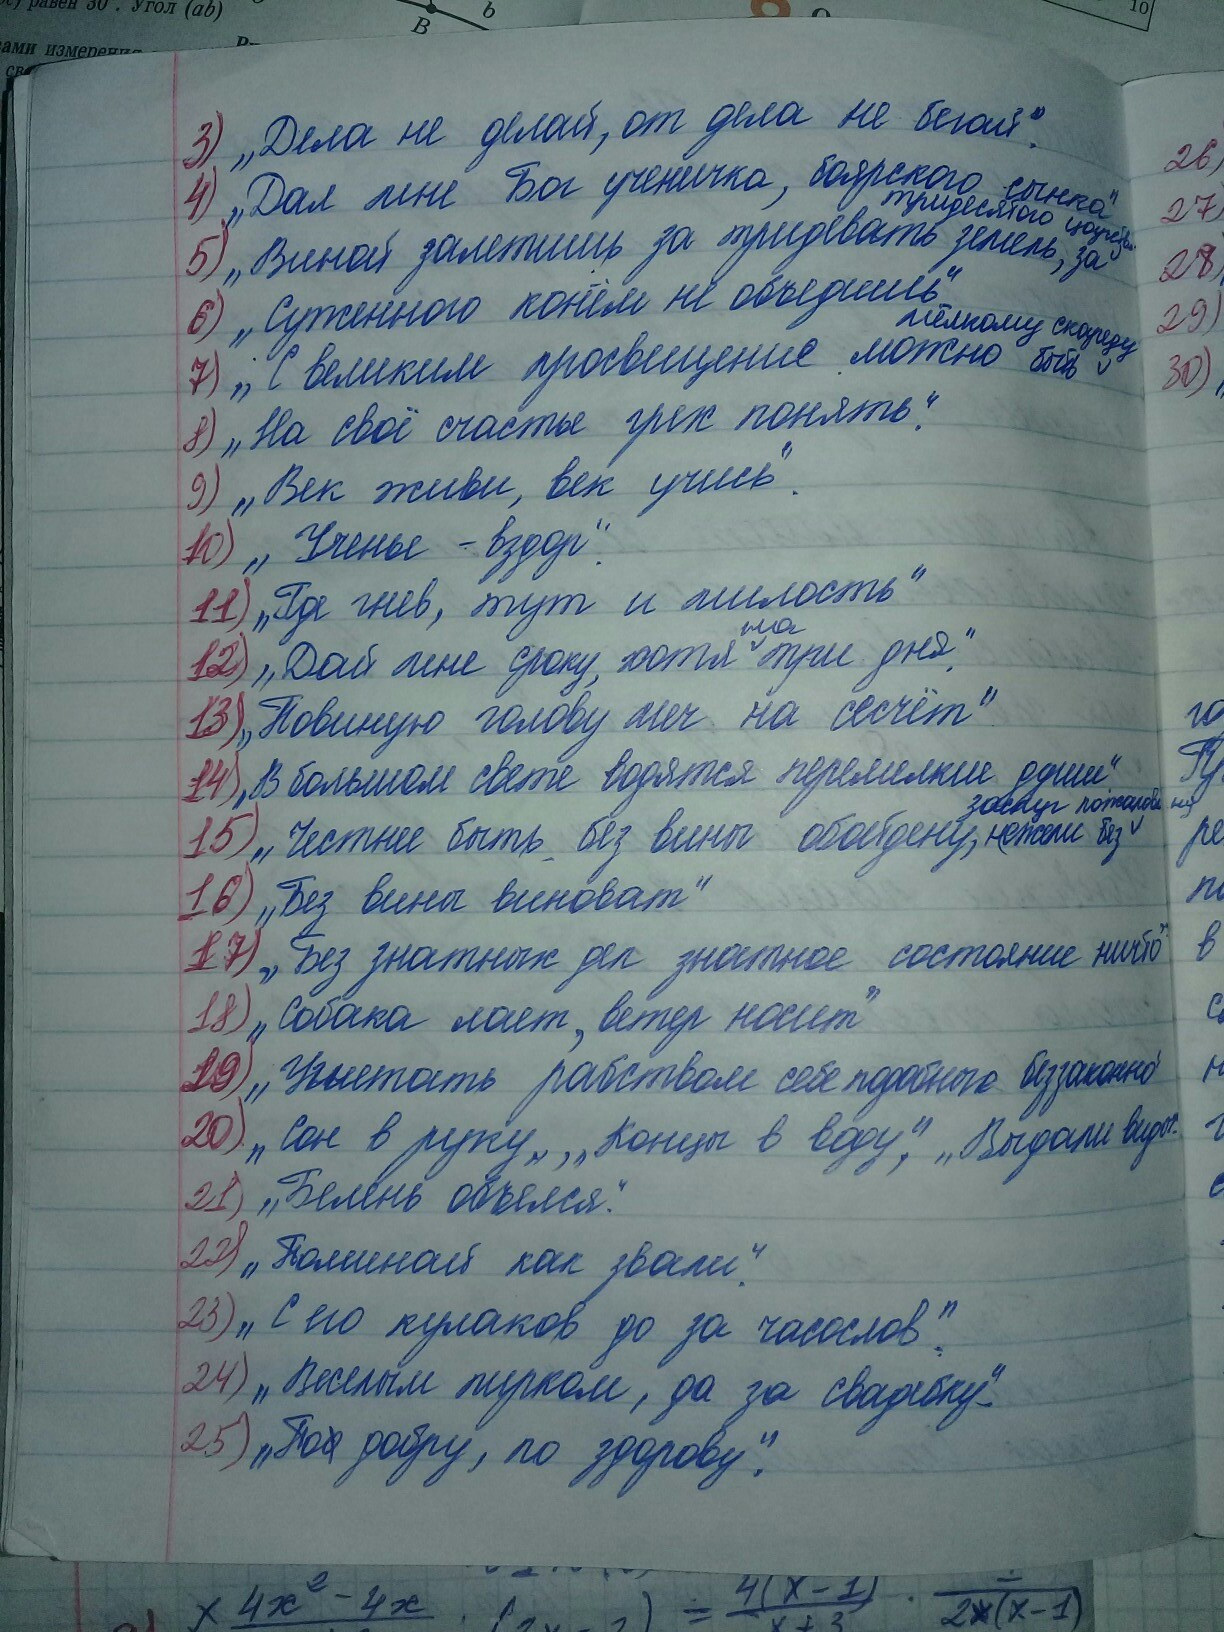 с) равен 30°. Угол (ab)
B
b
10
ами измерения
3) „Дела не делай, от дела не бегай".
4) „Дал мне Бог ученичка, боярского сынка"
тридесятого царства
5) „Виной залетишь за тридевать земель, за
6) „Суженного конём не объедишь"
мелкому скареду
7) „С великим просвещение можно быть
8) „На своё счастье грех понять".
9) „Век живи, век учись".
10) „Ученье - вздор".
11) „Где гнев, тут и милость"
на
12) „Дай мне сроку, хотя три дня".
13) „Повиную голову меч на сесчёт"
14) „В большом свете водятся перемелкие души"
заслуг пожалова ну
15) „Честнее быть без вины обойдену, нежели без
16) „Без вины виноват"
17) „Без знатных дел знатное состояние ничто"
18) „Собака лает, ветер носит"
19) „Угнетать рабством себе подобного беззаконно
20) „Сон в руку„, „Концы в воду", „Выдали виды".
21) „Белень объелся".
22) „Поминай как звали".
23) „С его кулаков до за часослов".
24) „Веселым пирком, да за свадебку".
25) „По добру, по здорову".
26)
27)
28)
29)
30)
× 4x² - 4x
= 4(x-1)
x+3
2x(x-1)